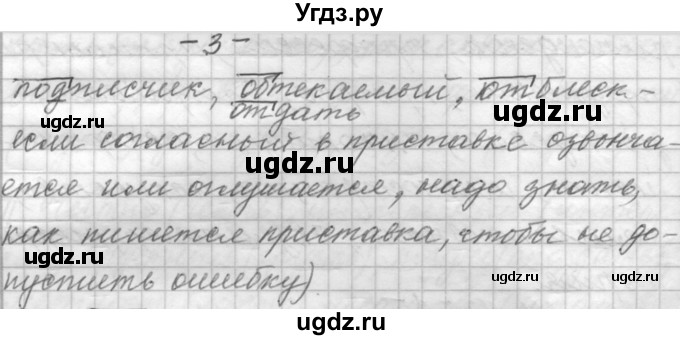 Угдз.ру
- 3 -
подписчик, обтекаемый, отблеск -
отдать
если согласный в приставке озвонча-
ется или оглушается, надо знать,
как пишется приставка, чтобы не до-
пустить ошибку)
ugdz.ru
ugdz.ru
ugdz.ru
ugdz.ru
ugdz.ru
ugdz.ru
ugdz.ru
ugdz.ru